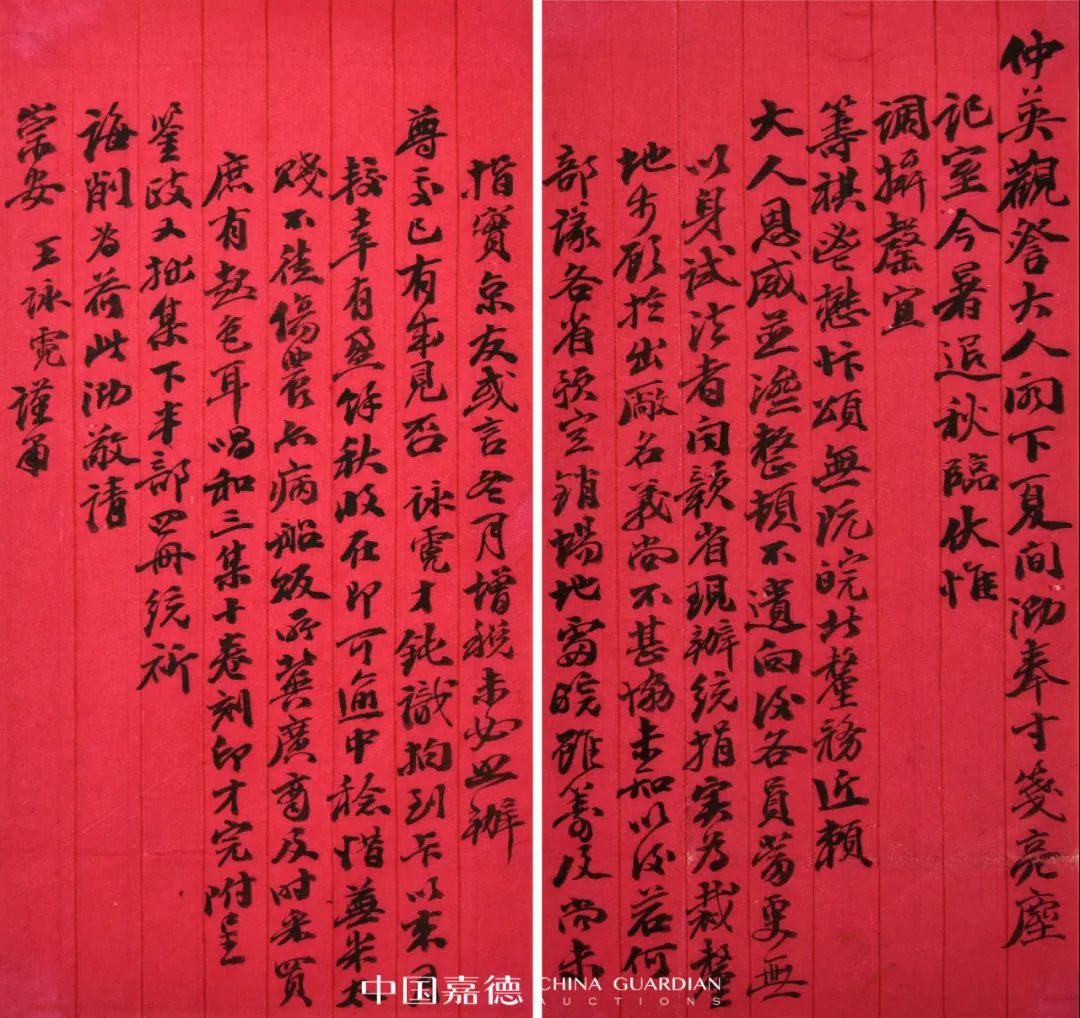 仲英觀詧大人閣下夏間泐奉寸箋亮塵
記室今暑退秋臨伏惟
調攝罄宜
籌祺懋忭頌無阮皖北釐務近賴
大人恩威並濟整頓不遺向後各員當更無
以身試法者聞贛省現辦統捐實為裁整
地步顧於出廠名義尚不甚協未知以後若何
部議各省預定銷場地當皖雖籌及尚未
指實京友或言冬月增稅未必照辦
尊處已有成見否 詠霓才鈍識拘到卡以來
較幸有盈餘秋收在即可逾中稔惜蕪米太
賤不徒傷農亦病船販所冀廣商及时采買
庶有起色耳唱和三集十卷刻印才完附呈
鉴政又拙集下半部四冊統祈
誨削為荷此泐敬請
崇安 王詠霓謹肅
中国嘉德 CHINA GUARDIAN
AUCTIONS